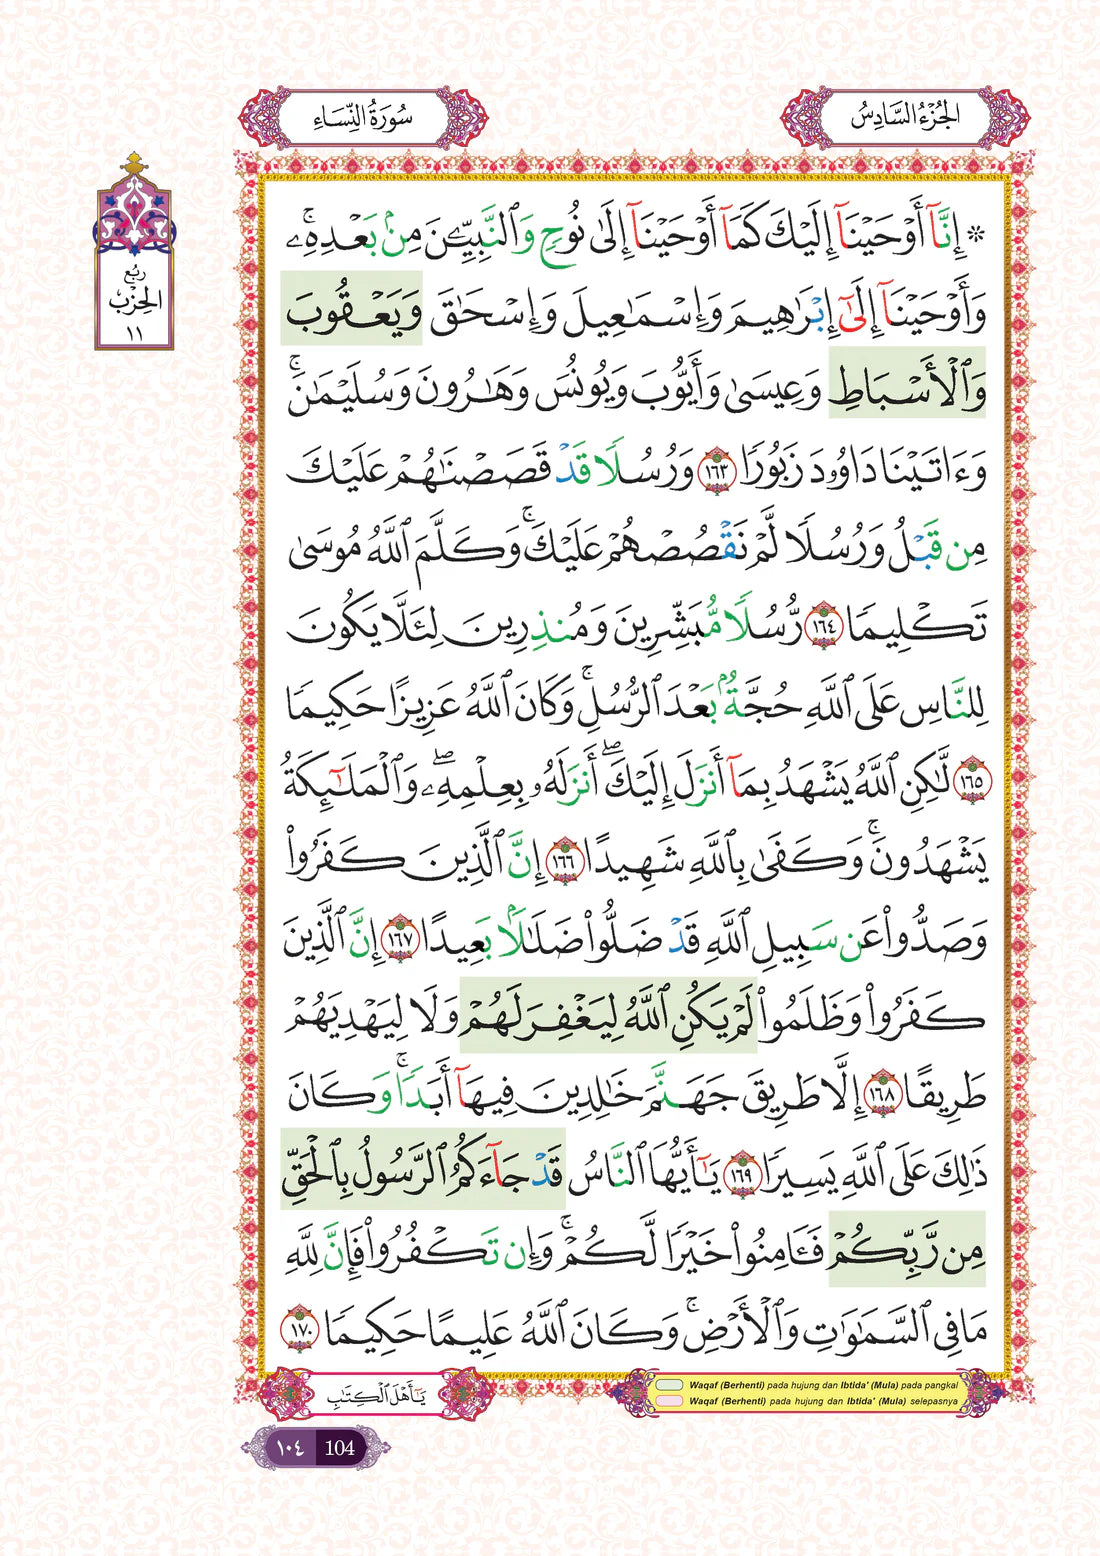 الجُزْءُ السَّادِسُ
سُورَةُ النِّسَاءِ
رُبُع
الحِزْب
١١
۞ إِنَّآ أَوْحَيْنَآ إِلَيْكَ كَمَآ أَوْحَيْنَآ إِلَىٰ نُوحٍ وَٱلنَّبِيِّـۧنَ مِنۢ بَعْدِهِۦۚ
وَأَوْحَيْنَآ إِلَىٰٓ إِبْرَٰهِيمَ وَإِسْمَـٰعِيلَ وَإِسْحَـٰقَ وَيَعْقُوبَ
وَٱلْأَسْبَاطِ وَعِيسَىٰ وَأَيُّوبَ وَيُونُسَ وَهَـٰرُونَ وَسُلَيْمَـٰنَۚ
وَءَاتَيْنَا دَاوُۥدَ زَبُورًا ١٦٣ وَرُسُلًا قَدْ قَصَصْنَـٰهُمْ عَلَيْكَ
مِن قَبْلُ وَرُسُلًا لَّمْ نَقْصُصْهُمْ عَلَيْكَۚ وَكَلَّمَ ٱللَّهُ مُوسَىٰ
تَكْلِيمًا ١٦٤ رُّسُلًا مُّبَشِّرِينَ وَمُنذِرِينَ لِئَلَّا يَكُونَ
لِلنَّاسِ عَلَى ٱللَّهِ حُجَّةٌۢ بَعْدَ ٱلرُّسُلِۚ وَكَانَ ٱللَّهُ عَزِيزًا حَكِيمًا
١٦٥ لَّـٰكِنِ ٱللَّهُ يَشْهَدُ بِمَآ أَنزَلَ إِلَيْكَۖ أَنزَلَهُۥ بِعِلْمِهِۦۖ وَٱلْمَلَـٰٓئِكَةُ
يَشْهَدُونَۚ وَكَفَىٰ بِٱللَّهِ شَهِيدًا ١٦٦ إِنَّ ٱلَّذِينَ كَفَرُوا۟
وَصَدُّوا۟ عَن سَبِيلِ ٱللَّهِ قَدْ ضَلُّوا۟ ضَلَـٰلًۢا بَعِيدًا ١٦٧ إِنَّ ٱلَّذِينَ
كَفَرُوا۟ وَظَلَمُوا۟ لَمْ يَكُنِ ٱللَّهُ لِيَغْفِرَ لَهُمْ وَلَا لِيَهْدِيَهُمْ
طَرِيقًا ١٦٨ إِلَّا طَرِيقَ جَهَنَّمَ خَـٰلِدِينَ فِيهَآ أَبَدًاۚ وَكَانَ
ذَٰلِكَ عَلَى ٱللَّهِ يَسِيرًا ١٦٩ يَـٰٓأَيُّهَا ٱلنَّاسُ قَدْ جَآءَكُمُ ٱلرَّسُولُ بِٱلْحَقِّ
مِن رَّبِّكُمْ فَـَٔامِنُوا۟ خَيْرًا لَّكُمْۚ وَإِن تَكْفُرُوا۟ فَإِنَّ لِلَّهِ
مَا فِى ٱلسَّمَـٰوَٰتِ وَٱلْأَرْضِۚ وَكَانَ ٱللَّهُ عَلِيمًا حَكِيمًا ١٧٠
يَـٰٓأَهْلَ ٱلْكِتَـٰبِ
Waqaf (Berhenti) pada hujung dan Ibtida' (Mula) pada pangkal
Waqaf (Berhenti) pada hujung dan Ibtida' (Mula) selepasnya
١٠٤ 104